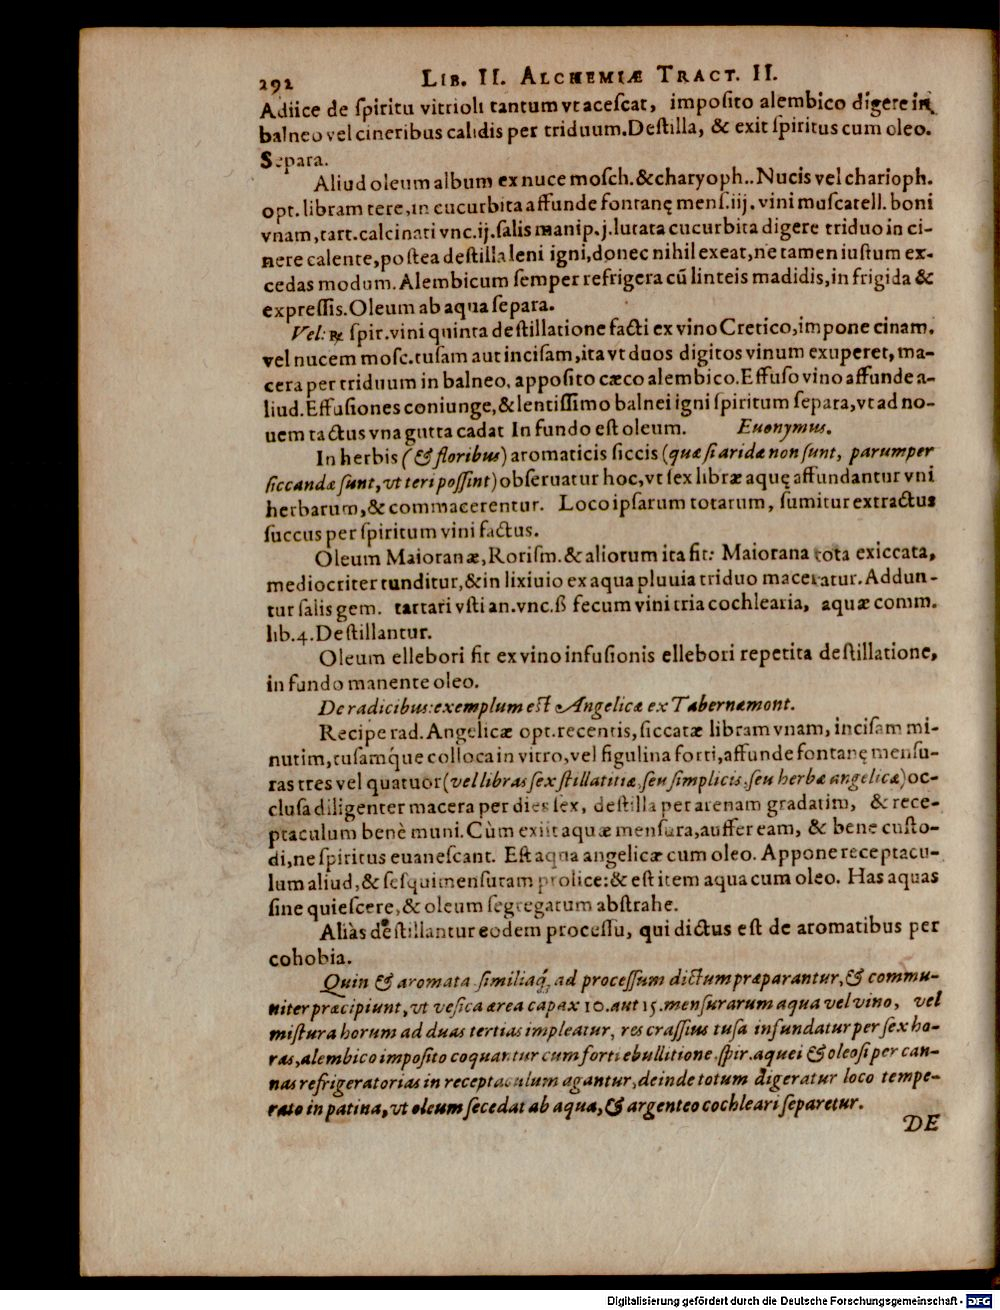 292 LIB. II. ALCHEMIÆ TRACT. II.
Adiice de ſpiritu vitrioli tantum vt aceſcat, impoſito alembico digere in
balneo vel cineribus calidis per triduum. Deſtilla, & exit ſpiritus cum oleo.
Separa.
Aliud oleum album ex nuce moſch. & charyoph.. Nucis vel charioph.
opt. libram tere, in cucurbita affunde fontanę menſ. iij. vini muſcatell. boni
vnam, tart. calcinati vnc. ij. ſalis manip. j. lutata cucurbita digere triduo in ci-
nere calente, poſtea deſtilla leni igni, donec nihil exeat, ne tamen iuſtum ex-
cedas modum. Alembicum ſemper refrigera cũ linteis madidis, in frigida &
expreſſis. Oleum ab aqua ſepara.
Vel: ℞ ſpir. vini quinta deſtillatione facti ex vino Cretico, impone cinam.
vel nucem moſc. tuſam aut inciſam, ita vt duos digitos vinum exuperet, ma-
cera per triduum in balneo, appoſito cæco alembico. Effuſo vino affunde a-
liud. Effuſiones coniunge, & lentiſſimo balnei igni ſpiritum ſepara, vt ad no-
uem tactus vna gutta cadat In fundo eſt oleum. Euonymus.
In herbis (& floribus) aromaticis ſiccis (quæ ſi aridæ non ſunt, parumper
ſiccandæ ſunt, vt teri poſſint) obſeruatur hoc, vt ſex libræ aquę affundantur vni
herbarum, & commacerentur. Loco ipſarum totarum, ſumitur extractus
ſuccus per ſpiritum vini factus.
Oleum Maioranæ, Roriſm. & aliorum ita fit: Maiorana tota exiccata,
mediocriter tunditur, & in lixiuio ex aqua pluuia triduo maceratur. Addun-
tur ſalis gem. tartari vſti an. vnc. ß fecum vini tria cochlearia, aquæ comm.
lib. 4. Deſtillantur.
Oleum ellebori fit ex vino infuſionis ellebori repetita deſtillatione,
in fundo manente oleo.
De radicibus: exemplum eſt Angelicæ ex Tabernæmont.
Recipe rad. Angelicæ opt. recentis, ſiccatæ libram vnam, inciſam mi-
nutim, tuſamq́ue colloca in vitro, vel figulina forti, affunde fontanę menſu-
ras tres vel quatuor (vel libras ſex ſtillatitiæ, ſeu ſimplicis, ſeu herbæ angelicæ) oc-
cluſa diligenter macera per dies ſex, deſtilla per arenam gradatim, & rece-
ptaculum benè muni. Cùm exiit aquæ menſura, auffer eam, & bene cuſto-
di, ne ſpiritus euaneſcant. Eſt aqua angelicæ cum oleo. Appone receptacu-
lum aliud, & ſeſquimenſuram prolice: & eſt item aqua cum oleo. Has aquas
ſine quieſcere, & oleum ſegregatum abſtrahe.
Aliàs deſtillantur eodem proceſſu, qui dictus eſt de aromatibus per
cohobia.
Quin & aromata ſimiliaq́; ad proceſſum dictum præparantur, & commu-
niter præcipiunt, vt veſica ærea capax 10. aut 15. menſurarum aqua vel vino, vel
miſtura horum ad duas tertias impleatur, res craſſius tuſa infundatur per ſex ho-
ras, alembico impoſito coquantur cum forti ebullitione. ſpir. aquei & oleoſi per can-
nas refrigeratorias in receptaculum agantur, deinde totum digeratur loco tempe-
rato in patina, vt oleum ſecedat ab aqua, & argenteo cochleari ſeparetur.
DE
Digitalisierung gefördert durch die Deutsche Forschungsgemeinschaft - DFG